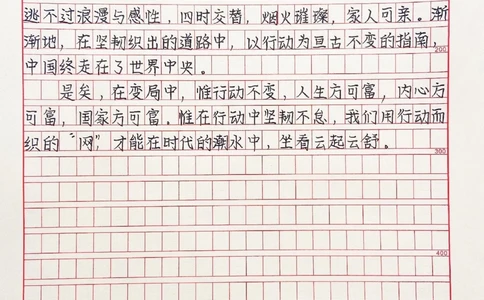 逃不过浪漫与感性，四时交替，烟火璀璨，家人可亲。渐
渐地，在坚韧织出的道路中，以行动为亘古不变的指南，
200
中国终走在了世界中央。
是矣，在变局中，惟行动不变，人生方可富，内心方
可富，国家方可富，惟在行动中坚韧不怠，我们用行动而
织的“网”，才能在时代的潮水中，坐看云起云舒。
300
400